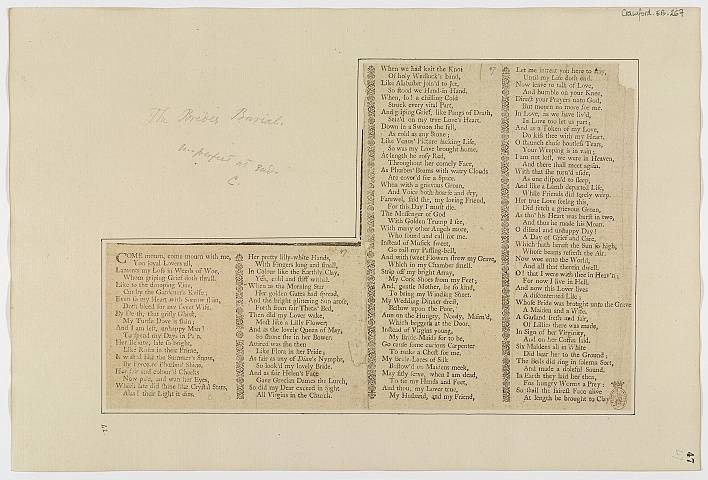 Crawford. EB. 267
The Brides Burial.
imperfect at end.
C.
COME mourn, come mourn with me,
You loyal Lovers all,
Lament my Loss in Weeds of Woe,
Whom griping Grief doth thrall.
Like to the drooping Vine,
Cut by the Gardener's Knife;
Even so my Heart with Sorrow slain,
Doth bleed for my sweet Wife.
By Death, that grisly Ghost,
My Turtle Dove is slain;
And I am left, unhappy Man!
To spend my Days in Pain.
Her Beauty, late so bright,
Like Roses in their Prime,
Is wasted like the Summer's Snow,
By Force of Phœbus' Shine.
Her fair and colour'd Cheeks
Now pale, and wan her Eyes,
That late did shine like Crystal Stars,
Alas! their Light it dies.
Her pretty lilly-white Hands,
With Fingers long and small,
In Colour like the Earthly Clay,
Yea, cold and stiff withal.
When as the Morning Star
Her golden Gates had spread,
And the bright glittering Sun arose,
Forth from fair Thetis' Bed,
Then did my Lover wake,
Most like a Lilly Flower;
And as the lovely Queen of May,
So shone she in her Bower.
Attired was she then
Like Flora in her Pride,
As fair as any of Dian's Nymphs,
So look'd my lovely Bride.
And as fair Helen's Face
Gave Grecian Dames the Lurch,
So did my Dear exceed in Sight
All Virgins in the Church.
When we had knit the Knot
Of holy Wedlock's band,
Like Alabaster join'd to Jet,
So stood we Hand-in-Hand.
When, lo! a chilling Cold
Struck every vital Part,
And griping Grief, like Pangs of Death,
Seiz'd on my true Love's Heart.
Down in a Swoon she fell,
As cold as any Stone;
Like Venus' Picture lacking Life,
So was my Love brought home.
At length he rosy Red,
Throughout her comely Face,
As Phœbus' Beams with watry Clouds
Are cover'd for a Space.
When with a grievous Groan,
And Voice both hoarse and dry,
Farewel, said she, my loving Friend,
For this Day I must die.
The Messenger of God
With Golden Trump I see,
With many other Angels more,
Who sound and call for me.
Instead of Musick sweet,
Go toll my Passing-bell,
And with sweet Flowers strow my Grave,
Which in my Chamber smell.
Strip off my bright Array,
My Cork Shoes from my Feet;
And, gentle Mother, be so kind,
To bring my Winding Sheet.
My Wedding Dinner drest,
Bestow upon the Poor,
And on the Hungry, Needy, Maim'd,
Which beggeth at the Door.
Instead of Virgins young,
My Bride-Maids for to be,
Go cause some curious Carpenter
To make a Chest for me.
My Bride Laces of Silk
Bestow'd on Maidens meek,
May fitly serve, when I am dead,
To tie my Hands and Feet,
And thou, my Lover true,
My Husband, and my Friend,
Let me intreat you here to stay,
Until my Life doth end.
Now leave to talk of Love,
And humble on your Knee,
Direct your Prayers unto God,
But mourn no more for me.
In Love, as we have liv'd,
In Love too let us part;
And as a Token of my Love,
Do kiss thee with my Heart.
O staunch those bootless Tears,
Your Weeping is in vain;
I am not lost, we were in Heaven,
And there shall meet again.
With that she turn'd aside,
As one dispos'd to sleep,
And like a Lamb departed Life,
While Friends did sorely weep.
Her true Love seeing this,
Did fetch a grievous Groan,
As tho' his Heart was burst in two,
And thus he made his Moan.
O dismal and unhappy Day!
A Day of Grief and Care,
Which hath bereft the Sun so high,
Whose beams refresh the Air.
Now woe unto the World,
And all that therein dwell.
O that I were with thee in Heav'n;
For now I live in Hell.
And now this Lover lives
A discontented Life;
Whose Bride was brought unto the Grave
A Maiden and a Wife.
A Garland fresh and fair,
Of Lillies there was made,
In Sign of her Virginity,
And on her Coffin laid.
Six Maidens all in White
Did bear her to the Ground;
The Bells did ring in solemn Sort,
And made a doleful Sound.
In Earth they laid her then,
For hungry Worms a Prey;
So shall the fairest Face alive
At length be brought to Clay.
47